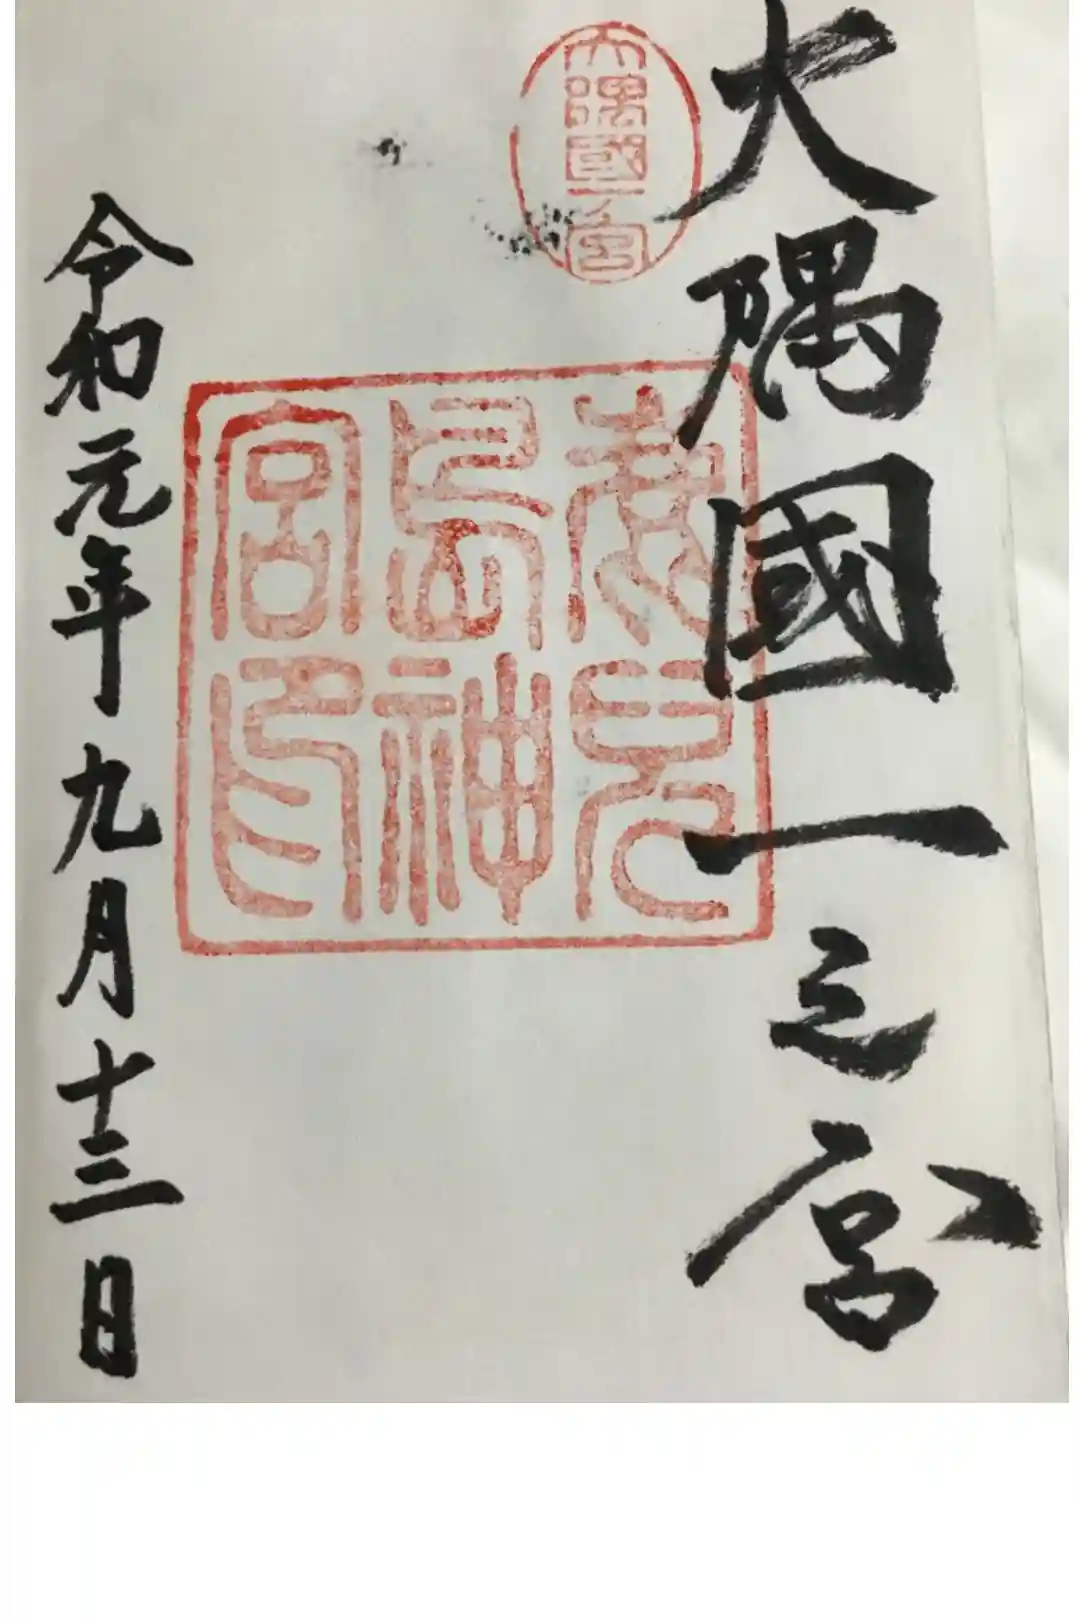 大隅國一之宮
大隅國一宮
鹿兒
島神
宮印
令和元年九月十三日